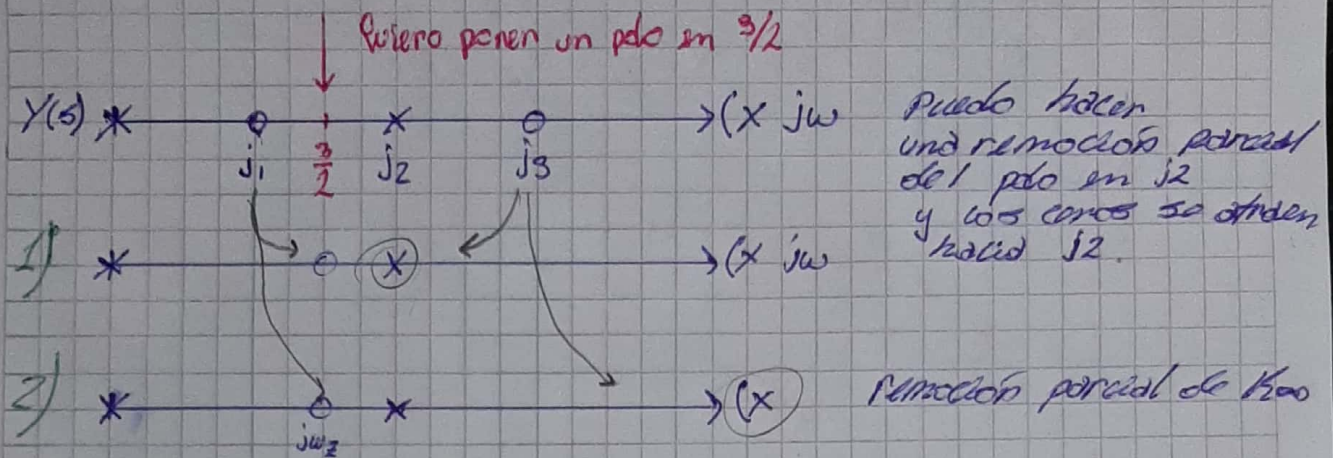 Quiero poner un polo en 3/2
Y(s) (x jw
j1 3/2 j2 j3
Puedo hacer
una remoción parcial
del polo en j2
y los ceros se atraen
hacia j2.
1) (x jw
2) (x)
jwz
remoción parcial de K∞